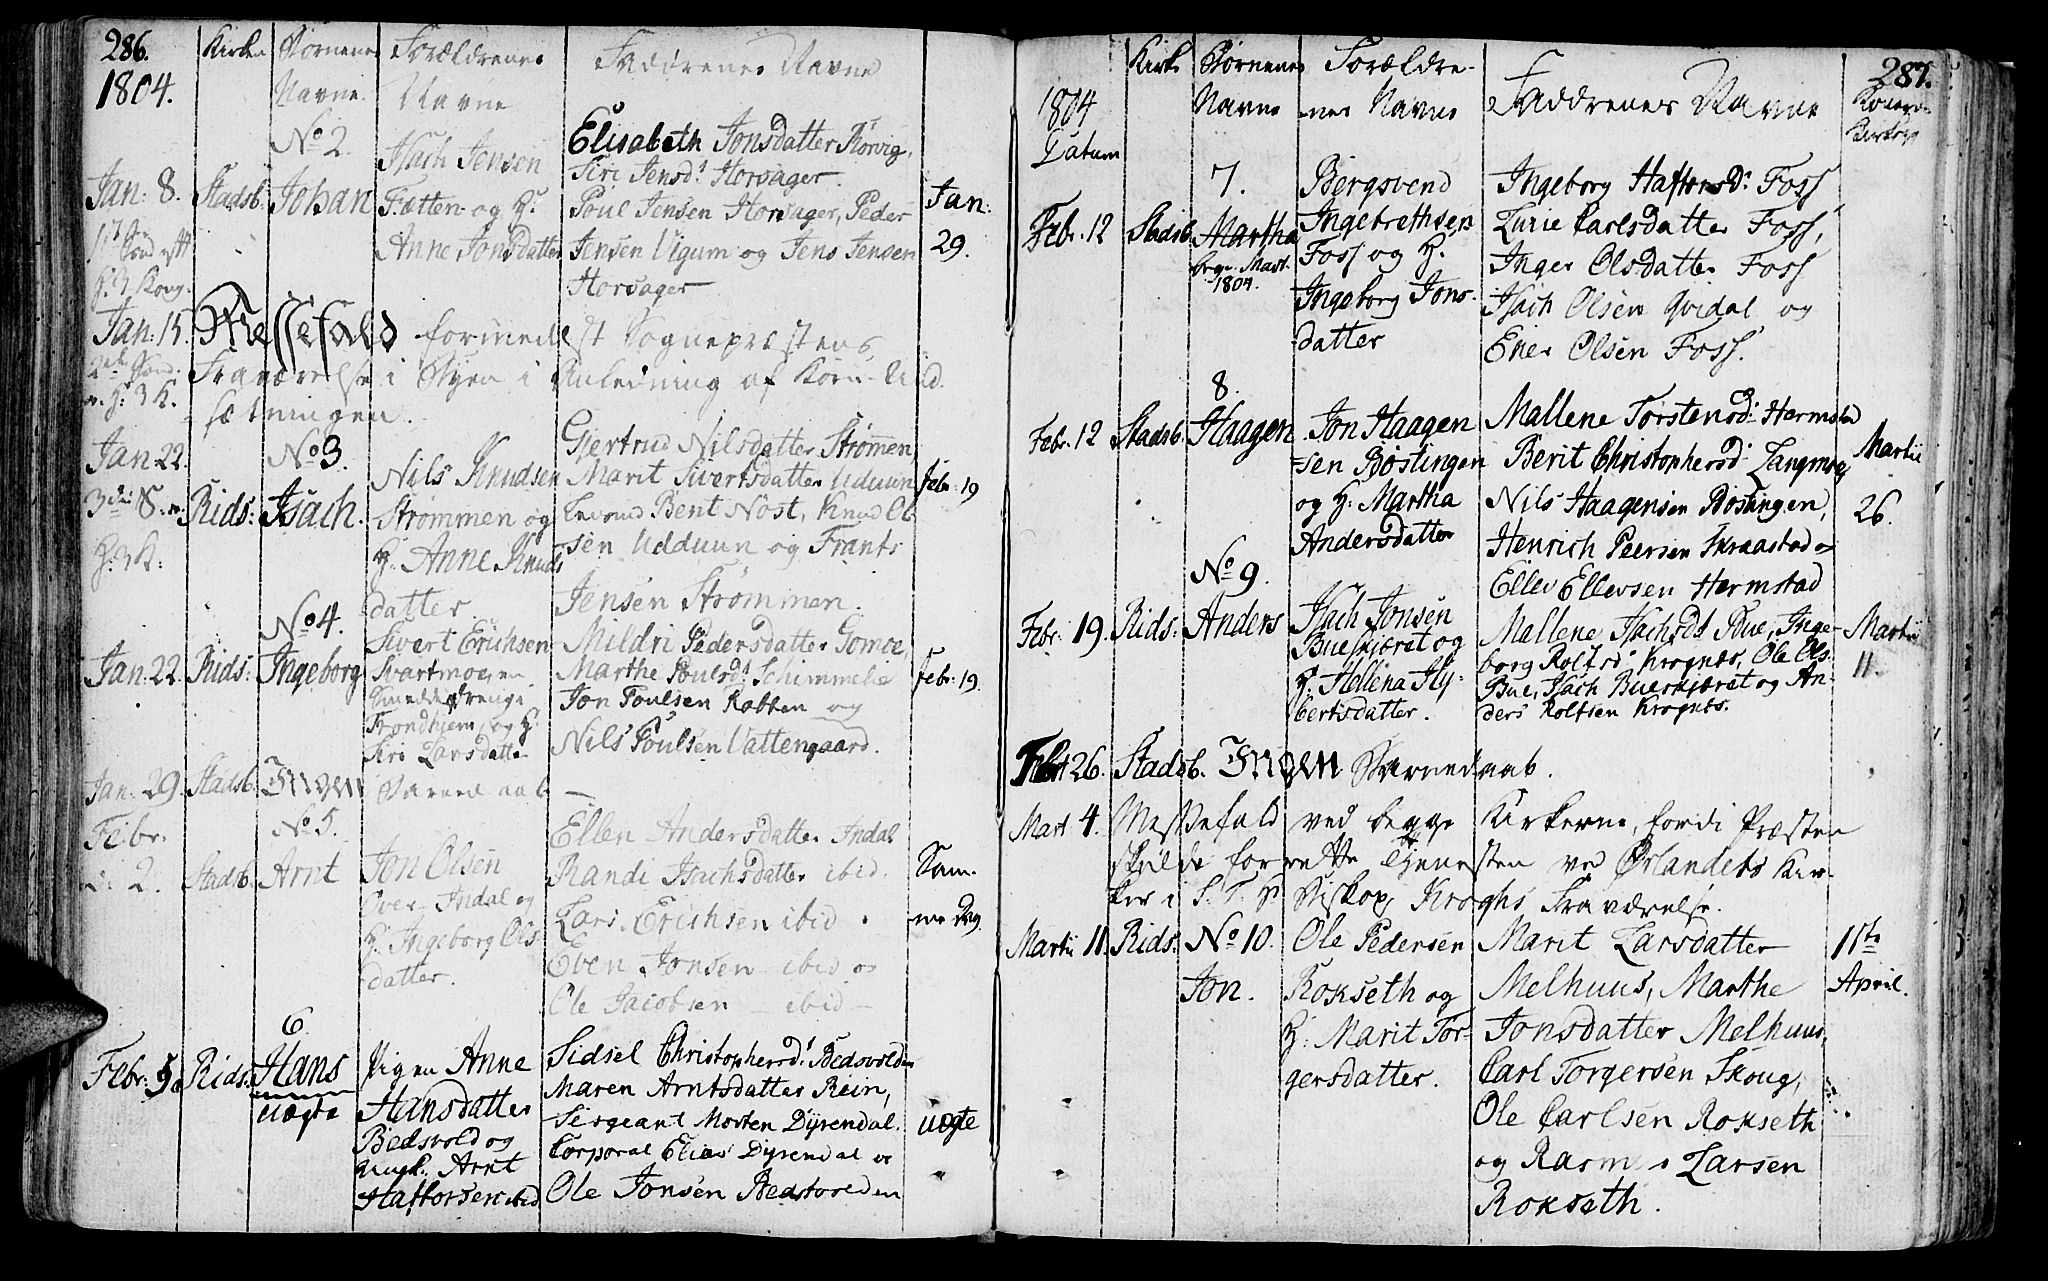 286.
1804.
Kirken
Børnenes Navne.
Forældrenes Navne
Faddrenes Navne
No 2.
Jan: 8. Stadsb: Johan
Isach Jensen
Fætten og H.
Anne Jonsdatter
Elisabeth Jonsdatter Rørvig,
Siri Jensd: Horsager.
Poul Jensen Horsager, Peder
Jensen Vigum og Jens Jensen
Horsager
Jan:
29.
Jan: 15. Messefald formedelst Sognepræstens
Fraværelse i Byen i Anledning af Korn-Ud
sætningen.
No 3.
Jan 22. Rids: Isach.
Nils Knudsen
Strømmen og
H. Anne Knuds
datter
Gjertrud Nilsdatter Strømen,
Marit Sivertsdatter Uduun
Bent Nøst, Knud Ol
sen Udduun og Frants
Jensen Strømmen.
Febr: 19
No 4.
Jan: 22 Rids: Ingeborg
Sivert Erichsen
Svartmoe, en
Smeddedreng i
Trondhiem, og H.
Siri Larsdatter
Mildri Pedersdatter Gomoe,
Marthe Poulsd: Schimmelie
Jon Poulsen Rabben og
Nils Poulsen Vattengaard.
Febr: 19.
Jan: 29. Stadsb. Ingen Barnedaab
No 5.
Febr.
2. Stadsb. Arnt
Jon Olsen
Over-Indal og
H. Ingeborg Ols
datter.
Ellen Andersdatter Indal
Randi Isachsdatter ibid.
Lars Erichsen ibid.
Even Jonsen ibid og
Ole Jacobsen ibid
Sam-
me Dag.
6.
Febr: 5. Rids: Hans
uægte
Pigen Anne
Hansdatter
Bedsvold og
Ungk: Arnt
Haftorsen ibid
Sidsel Christophersd: Bedsvolden
Maren Arntsdatter Rein,
Sergeant Morten Dyrendal.
Corporal Elias Dyrendal og
Ole Jonsen Bedsvolden
uægte
287.
1804
Datum
Kirke
Børnenes
Navne
Forældre-
nes Navne
Faddrenes Navne
7.
Febr. 12 Stadsb. Martha
1804.
Bergsvend
Ingebrethsen
Foss og H.
Ingeborg Jons-
datter
Ingeborg Haftorsd: Foss
Lurie Carlsdatter Foss,
Inger Olsdatter Foss
Isach Olsen Qvidal og
Ener Olsen Foss.
8.
Febr. 12 Stadsb. Haagen
Jon Haagen
sen Bøstingen
og H. Martha
Andersdatter
Mallene Torstensd: Hermstad
Berit Christophersd: Langmoe
Nils Haagensen Bøstingen,
Henrich Peersen Skraastad og
Ellev Ellevsen Hermstad
Martii
26.
No 9.
Febr: 19. Rids: Anders
Isach Jonsen
Bueskjæret og
H. Hellena Hy-
bertsdatter.
Mallene Isachsdt Bue, Inge-
borg Rolfsd: Krognæs, Ole Ols-
Bue, Isach Bueskjæret og An-
ders Rolfsen Krognæs.
Martii
11.
Febr 26. Stadsb. Ingen Barnedaab.
Mart 4. Messefald ved begge Kirkerne, fordi Præsten
skulde forrette Tjenesten ved Ørlandets Kir-
ker i S. T. Hr Biskop Kroghs Fraværelse.
Martii 11. Rids: No 10.
Jon.
Ole Pedersen
Rokseth og
H. Marit Tor-
gersdatter.
Marit Larsdatter
Melhuus, Marthe
Jonsdatter Melhuus,
Carl Torgersen Skoug,
Ole Carlsen Rokseth
og Rasmus Larsen
Rokseth.
11te
April.